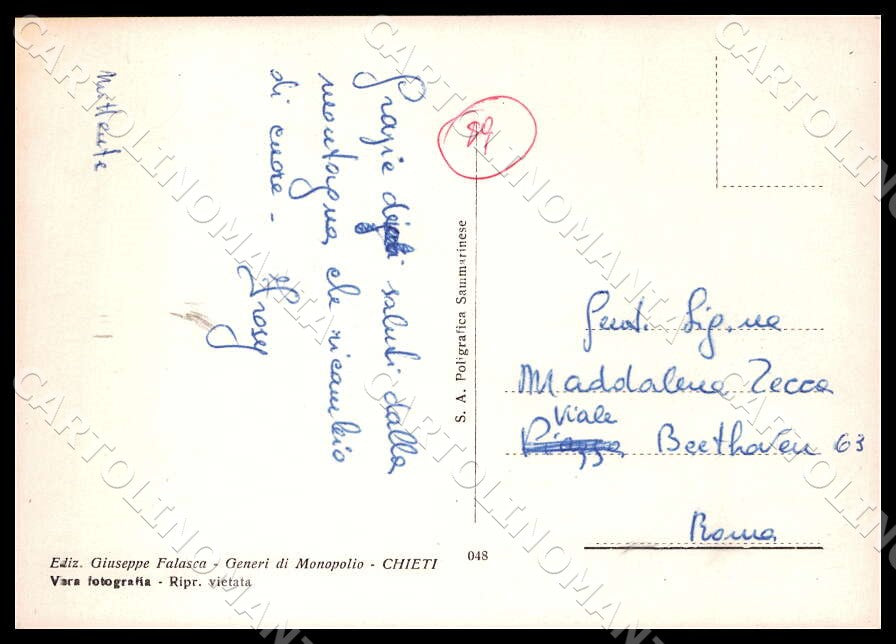 Grazie dei saluti dalla
montagna che ricambio
di cuore -
Mittente
89
S. A. Poligrafica Sammarinese
Gent. Sig.na
Maddalena Zecca
Viale
Piazza Beethoven 63
Roma
Ediz. Giuseppe Falasca - Generi di Monopolio - CHIETI
Vera fotografia - Ripr. vietata
048
CARTOLINOMANIA